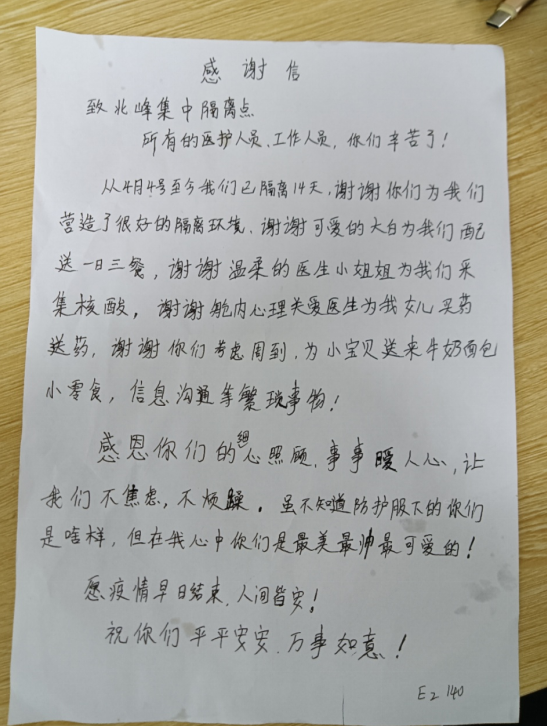 感谢信
致北峰集中隔离点
所有的医护人员、工作人员，你们辛苦了！
从4月4号至今我们已隔离14天，谢谢你们为我们
营造了很好的隔离环境、谢谢可爱的大白为我们配
送一日三餐，谢谢温柔的医生小姐姐为我们采
集核酸，谢谢舱内心理关爱医生为我女儿买药
送药，谢谢你们考虑周到，为小宝贝送来牛奶面包
小零食，信息沟通等繁琐事物！
感恩你们的细心照顾，事事暖人心，让
我们不焦虑，不烦躁。虽不知道防护服下的你们
是啥样，但在我心中你们是最美最帅最可爱的！
愿疫情早日结束，人间皆安！
祝你们平平安安、万事如意！
E2 140